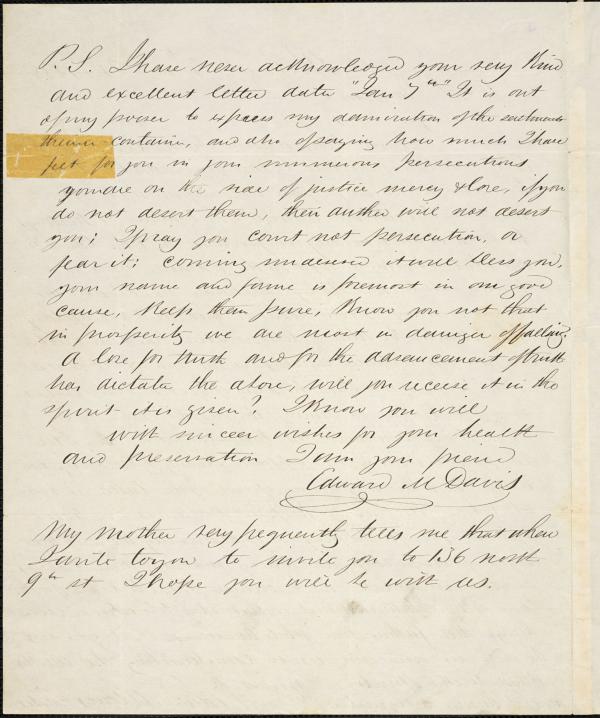 P.S. I have never acknowledged your very kind
and excellent letter date "Jan 7th" It is out
of my power to express my admiration of the sentiments
therein contain, and also of saying how much I have
felt for you in your numerous persecutions
you are on the side of justice mercy & love, if you
do not desert them, their author will not desert
you; I pray you court not persecution, or
fear it; coming undesired it will bless you,
your name and fame is foremost in our good
cause, keep them pure, Know you not that
in prosperity we are most in danger of falling.
A love for truth and for the advancement of truth
has dictate the above, will you receive it in the
spirit it is given? I know you will
with sincere wishes for your health
and preservation I am your friend
Edward M Davis
My mother very frequently tells me that when
I write to you to invite you to 136 north
9th st I hope you will be with us.